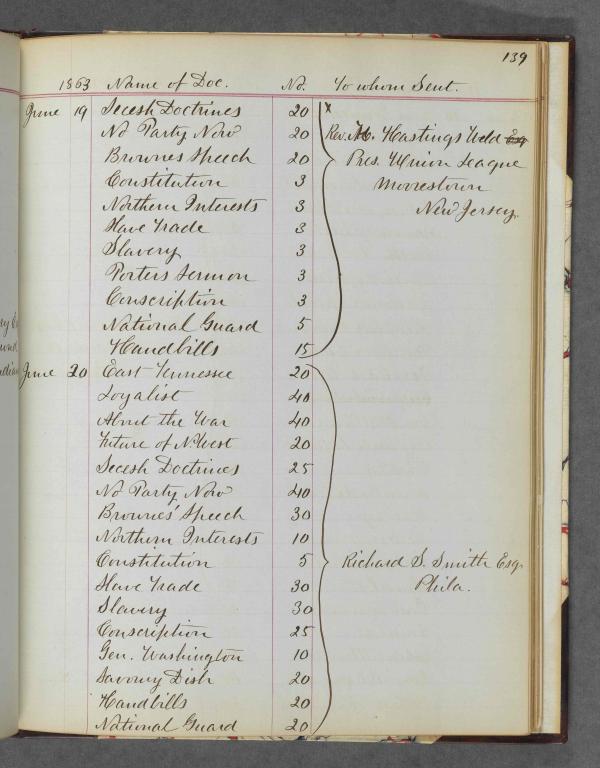 139
1863 Name of Doc. No. To whom Sent.
June 19 Secesh Doctrines 20 x
No Party Now 20 Rev. H. Hastings Weld Esq
Brownes Speech 20 Pres. Union League
Constitution 3 Moorestown
Northern Interests 3 New Jersey.
Slave Trade 3
Slavery 3
Porters Sermon 3
Conscription 3
National Guard 5
Handbills 15
June 20 East Tennessee 20
Loyalist 40
About the War 40
Future of N. West 20
Secesh Doctrines 25
No Party Now 40
Brownes' Speech 30
Northern Interests 10
Constitution 5 Richard S. Smith Esq.
Slave Trade 30 Phila.
Slavery 30
Conscription 25
Gen. Washington 10
Savoury Dish 20
Handbills 20
National Guard 20